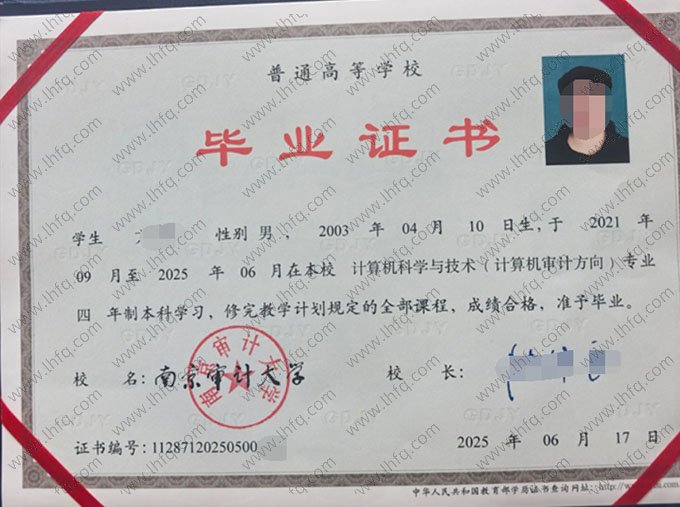 普通高等学校
毕业证书
学生 性别 男, 2003 年 04 月 10 日生, 于 2021 年
09 月至 2025 年 06 月在本校 计算机科学与技术(计算机审计方向) 专业
四 年制本科学习, 修完教学计划规定的全部课程, 成绩合格, 准予毕业。
南京审计大学
校 名: 南京审计大学 校 长:
证书编号: 11287120250500
2025 年 06 月 17 日
中华人民共和国教育部学历证书查询网址: http://www.
www.lhfq.com